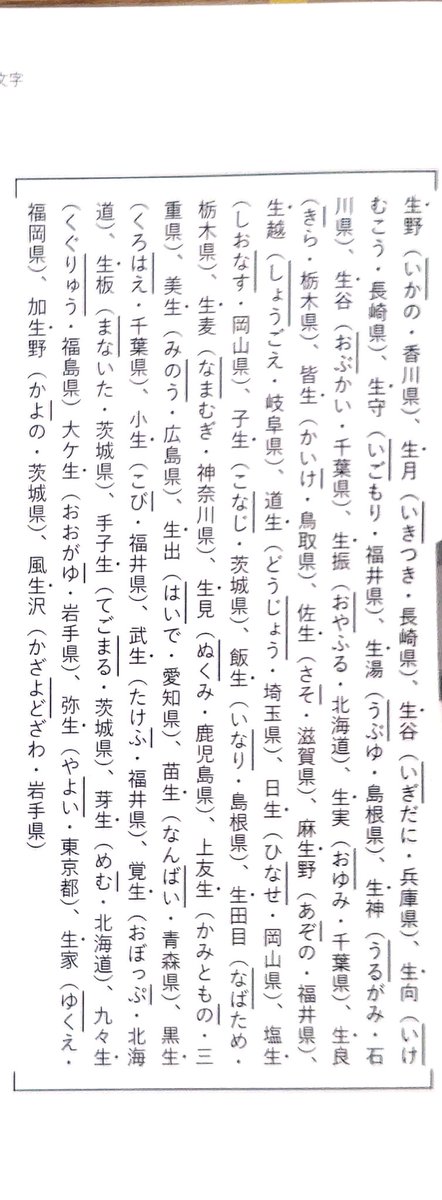 文字
生野（いかの・香川県）、生月（いきつき・長崎県）、生谷（いぎだに・兵庫県）、生向（いけ
むこう・長崎県）、生守（いごもり・福井県）、生湯（うぶゆ・島根県）、生神（うるがみ・石
川県）、生谷（おぶかい・千葉県）、生振（おやふる・北海道）、生実（おゆみ・千葉県）、生良
（きら・栃木県）、皆生（かいけ・鳥取県）、佐生（さそ・滋賀県）、麻生野（あぞの・福井県）、
生越（しょうごえ・岐阜県）、道生（どうじょう・埼玉県）、日生（ひなせ・岡山県）、塩生
（しおなす・岡山県）、子生（こなじ・茨城県）、飯生（いなり・島根県）、生田目（なばため・
栃木県）、生麦（なまむぎ・神奈川県）、生見（ぬくみ・鹿児島県）、上友生（かみともの・三
重県）、美生（みのう・広島県）、生出（はいで・愛知県）、苗生（なんばい・青森県）、黒生
（くろはえ・千葉県）、小生（こび・福井県）、武生（たけふ・福井県）、覚生（おぼっぷ・北海
道）、生板（まないた・茨城県）、手子生（てごまる・茨城県）、芽生（めむ・北海道）、九々生
（くぐりゅう・福島県）大ケ生（おおがゆ・岩手県）、弥生（やよい・東京都）、生家（ゆくえ・
福岡県）、加生野（かよの・茨城県）、風生沢（かざよどざわ・岩手県）